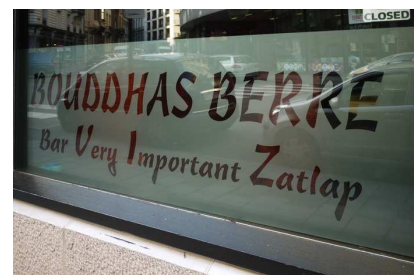 CLOSED
BOUDDHAS BERRE
Bar Very Important Zatlap